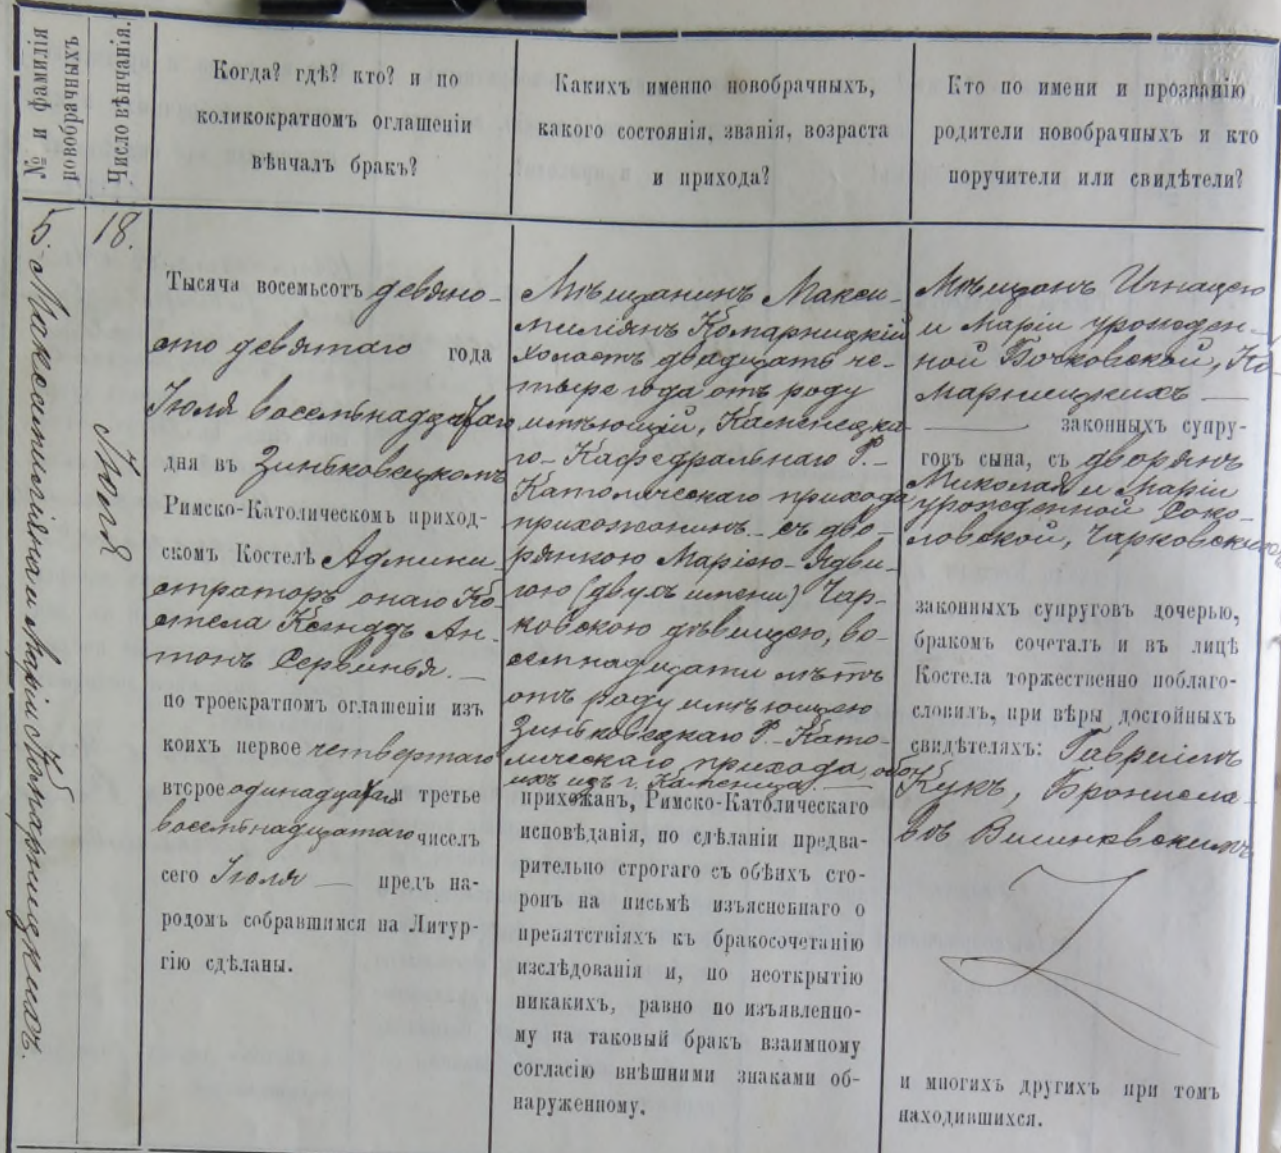 № и фамилія
новобрачныхъ
Число вѣнчанія.
Когда? гдѣ? кто? и по
коликократномъ оглашеніи
вѣнчалъ бракъ?
Какихъ именно новобрачныхъ,
какого состоянія, званія, возраста
и прихода?
Кто по имени и прозванію
родители новобрачныхъ и кто
поручители или свидѣтели?
5. Максимиліяна и Маріи Комарницкихъ.
18.
Іюля
Тысяча восемьсотъ девяно-
сто девятаго года
Іюля восемьнадцатаго
дня въ Зиньковецкомъ
Римско-Католическомъ приход-
скомъ Костелѣ Админи-
страторъ онаго Ко-
стела Ксендзъ Ан-
тонъ
по троекратномъ оглашеніи изъ
коихъ первое четвертаго
второе одинадцатаго и третье
восемьнадцатаго чиселъ
сего Іюля — предъ на-
родомъ собравшимся на Литур-
гію сдѣланы.
Мѣщанинъ Макси-
миліянъ Комарницкій
холостъ двадцать че-
тыре года отъ роду
имѣющій, Каменецка-
го-Кафедральнаго Р.-
Католическаго прихода
прихожанинъ - съ дво-
рянкою Маріею-Ядви-
гою (двухъ имени) Чар-
ковскою дѣвицею, во-
семнадцати лѣтъ
отъ роду имѣющею
Зиньковецкаго Р.-Като-
лическаго прихода, обо-
ихъ изъ г. Каменца. —
прихожан, Римско-Католическаго
исповѣданія, по сдѣланіи предва-
рительно строгаго съ обѣихъ сто-
ронъ на письмѣ изъясненнаго о
препятствіяхъ къ бракосочетанію
изслѣдованія и, по неоткрытію
никакихъ, равно по изъявленно-
му на таковый бракъ взаимному
согласію внѣшними знаками об-
наруженному.
Мѣщанъ Игнацею
и Маріи урожден-
ной Бочковской, Ко-
марницкихъ —
— законныхъ супру-
говъ сына, съ дворянъ
Миколая и Маріи
урожденной Соко-
ловской, Чарковскихъ
законныхъ супруговъ дочерью,
бракомъ сочеталъ и въ лицѣ
Костела торжественно поблаго-
словилъ, при вѣры достойныхъ
свидѣтеляхъ: Гавріилъ
Кукъ, Брониславъ-
вов
и многихъ другихъ при томъ
находившихся.